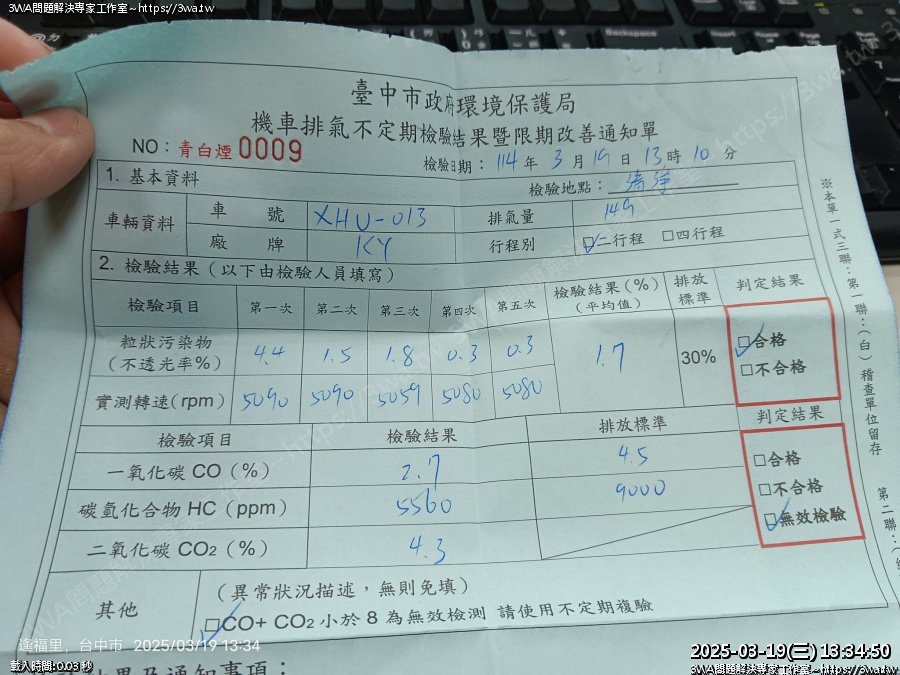 3WA問題解決專家工作室~https://3wa.tw
臺中市政府環境保護局
機車排氣不定期檢驗結果暨限期改善通知單
NO：青白煙0009
檢驗日期：114年3月19日13時10分
1. 基本資料
檢驗地點：
車輛資料 車號 XHU-013 排氣量 149
廠牌 KY 行程別 ☑二行程 □四行程
2. 檢驗結果（以下由檢驗人員填寫）
檢驗項目 第一次 第二次 第三次 第四次 第五次 檢驗結果(%)(平均值) 排放標準 判定結果
粒狀污染物（不透光率%） 4.4 1.5 1.8 0.3 0.3 1.7 30% ☑合格 □不合格
實測轉速(rpm) 5090 5090 5059 5080 5080
檢驗項目 檢驗結果 排放標準 判定結果
一氧化碳 CO（%） 2.7 4.5 □合格
碳氫化合物 HC（ppm） 5560 9000 □不合格
二氧化碳 CO2（%） 4.3 ☑無效檢驗
其他 （異常狀況描述，無則免填）
☑CO+ CO2 小於 8 為無效檢測 請使用不定期複驗
※本單一式三聯：第一聯：（白）稽查單位留存
第二聯：
逢福里，台中市 2025/03/19 13:34
載入時間:0.03 秒
結果及通知事項：
2025-03-19(三) 13:34:50
3WA問題解決專家工作室~https://3wa.tw